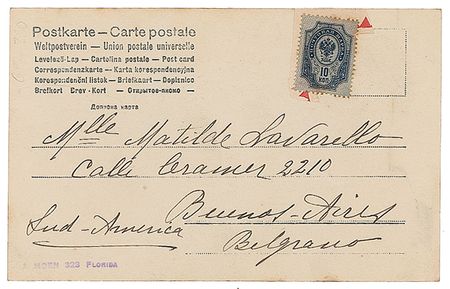 Postkarte – Carte postale
Weltpostverein – Union postale universelle
Levelező-Lap – Cartolina postale – Post card
Correspondenzkarte – Karta korespondencyjna
Korespondenční lístek – Briefkaart – Dopisnice
Brefkort Brev-Kort – Открытое письмо
Дописна карта
10
Mlle Matilde Lavarello
Calle Cramer 2210
Buenos-Aires
Sud-America
Belgrano
MOEN 323 FLORIDA